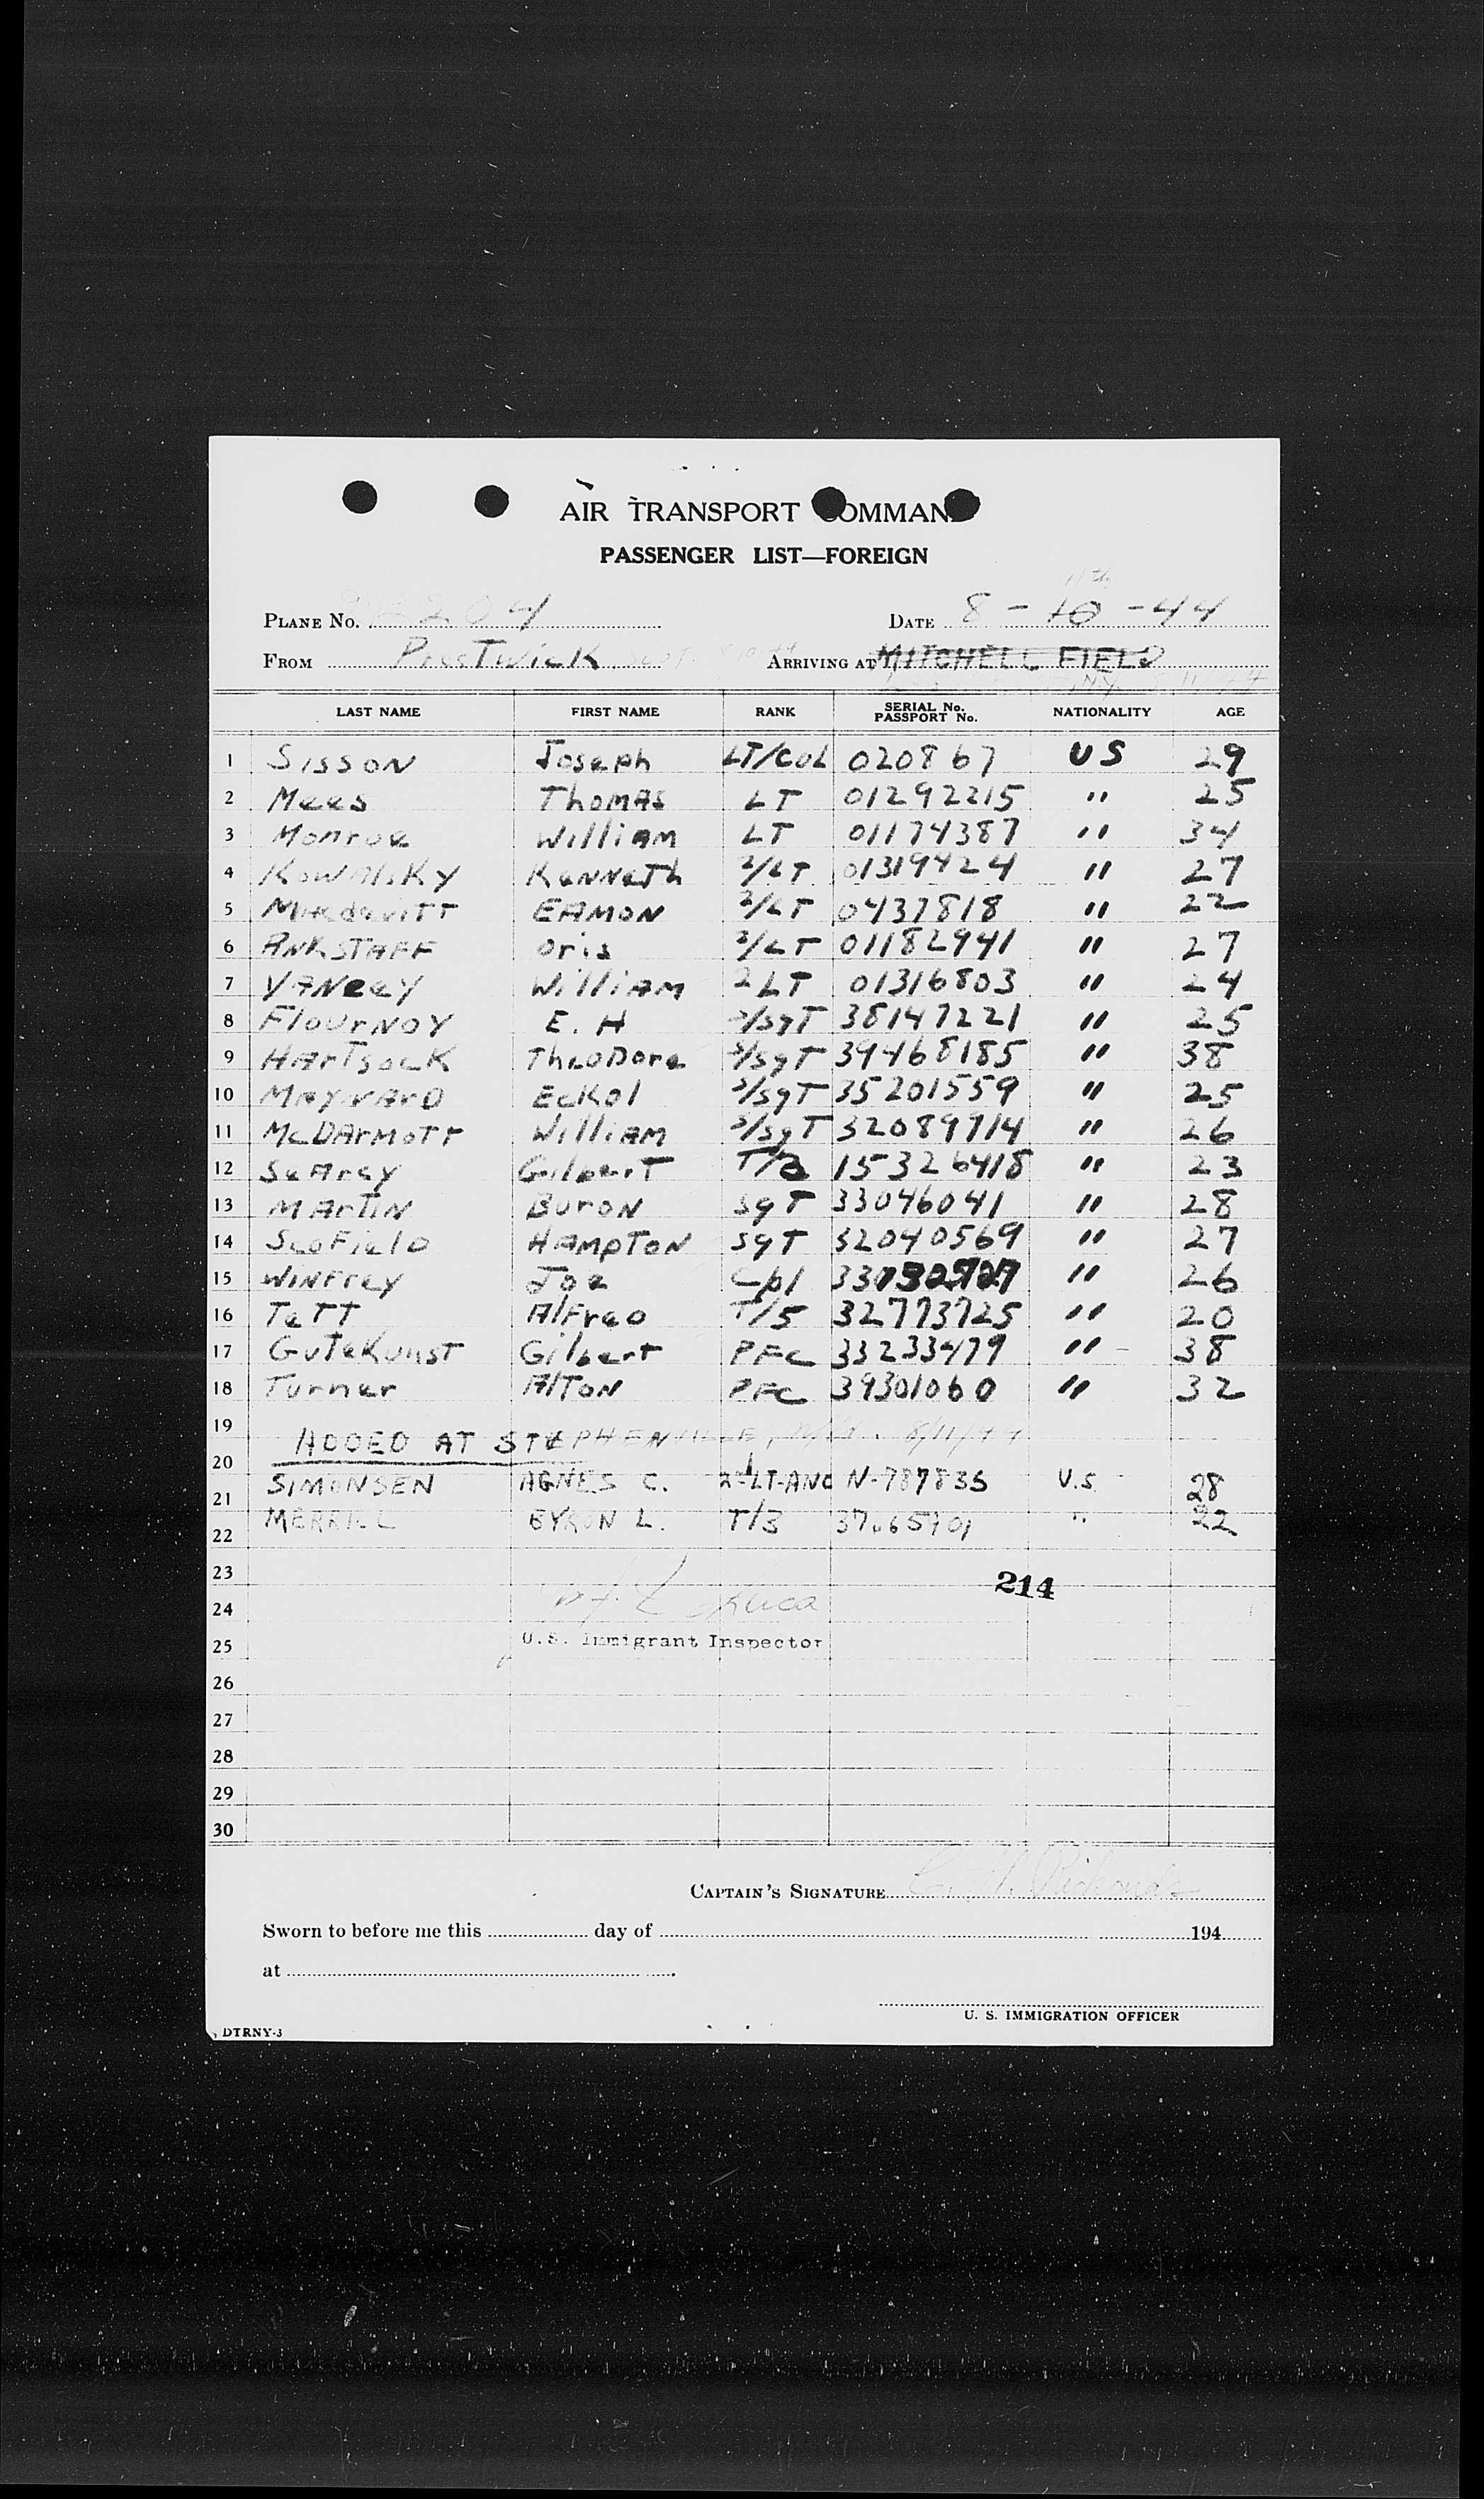 AIR TRANSPORT COMMAND
PASSENGER LIST—FOREIGN
11th
PLANE No. 204 DATE 8-10-44
FROM PresTwick ARRIVING AT MITCHELL FIELD
LAST NAME FIRST NAME RANK SERIAL No. PASSPORT No. NATIONALITY AGE
1 SISSON Joseph LT/COL 020867 US 29
2 Mees ThomAs LT 01292215 " 25
3 Monroe WilliAM LT 01174387 " 34
4 KowAlsKy KenneTh 2/LT 01319424 " 27
5 EAMON 2/LT 0437818 " 22
6 ANKSTAFF Oris 2/LT 01182941 " 27
7 YANCEY WilliAM 2 LT 01316803 " 24
8 FlourNoy E. H S/SgT 38147221 " 25
9 HArTsock TheoDore S/SgT 39468185 " 38
10 MAYNARD Eckol S/SgT 35201559 " 25
11 McDArmoTT WilliAM S/SgT 32089914 " 26
12 SeArcy GilberT T/3 15326418 " 23
13 MArTiN Buron SgT 33046041 " 28
14 ScoField HAMPTON SgT 32040569 " 27
15 WiNFrey Joe Cpl " 26
16 TeTT AlFred T/5 32773725 " 20
17 GuTeKunsT GilberT PFC 33233479 " 38
18 Turner AlTON PFC 39301060 " 32
19
ADDED AT STEPHENVILLE, 8/11/44
20
SIMONSEN AGNES C. 2nd LT-ANC N-787835 U.S. 28
21
MERRILL BYRON L. T/3 " 22
22
23
214
24
25 U.S. Immigrant Inspector
26
27
28
29
30
CAPTAIN'S SIGNATURE
Sworn to before me this day of 194
at
U. S. IMMIGRATION OFFICER
DTRNY-3